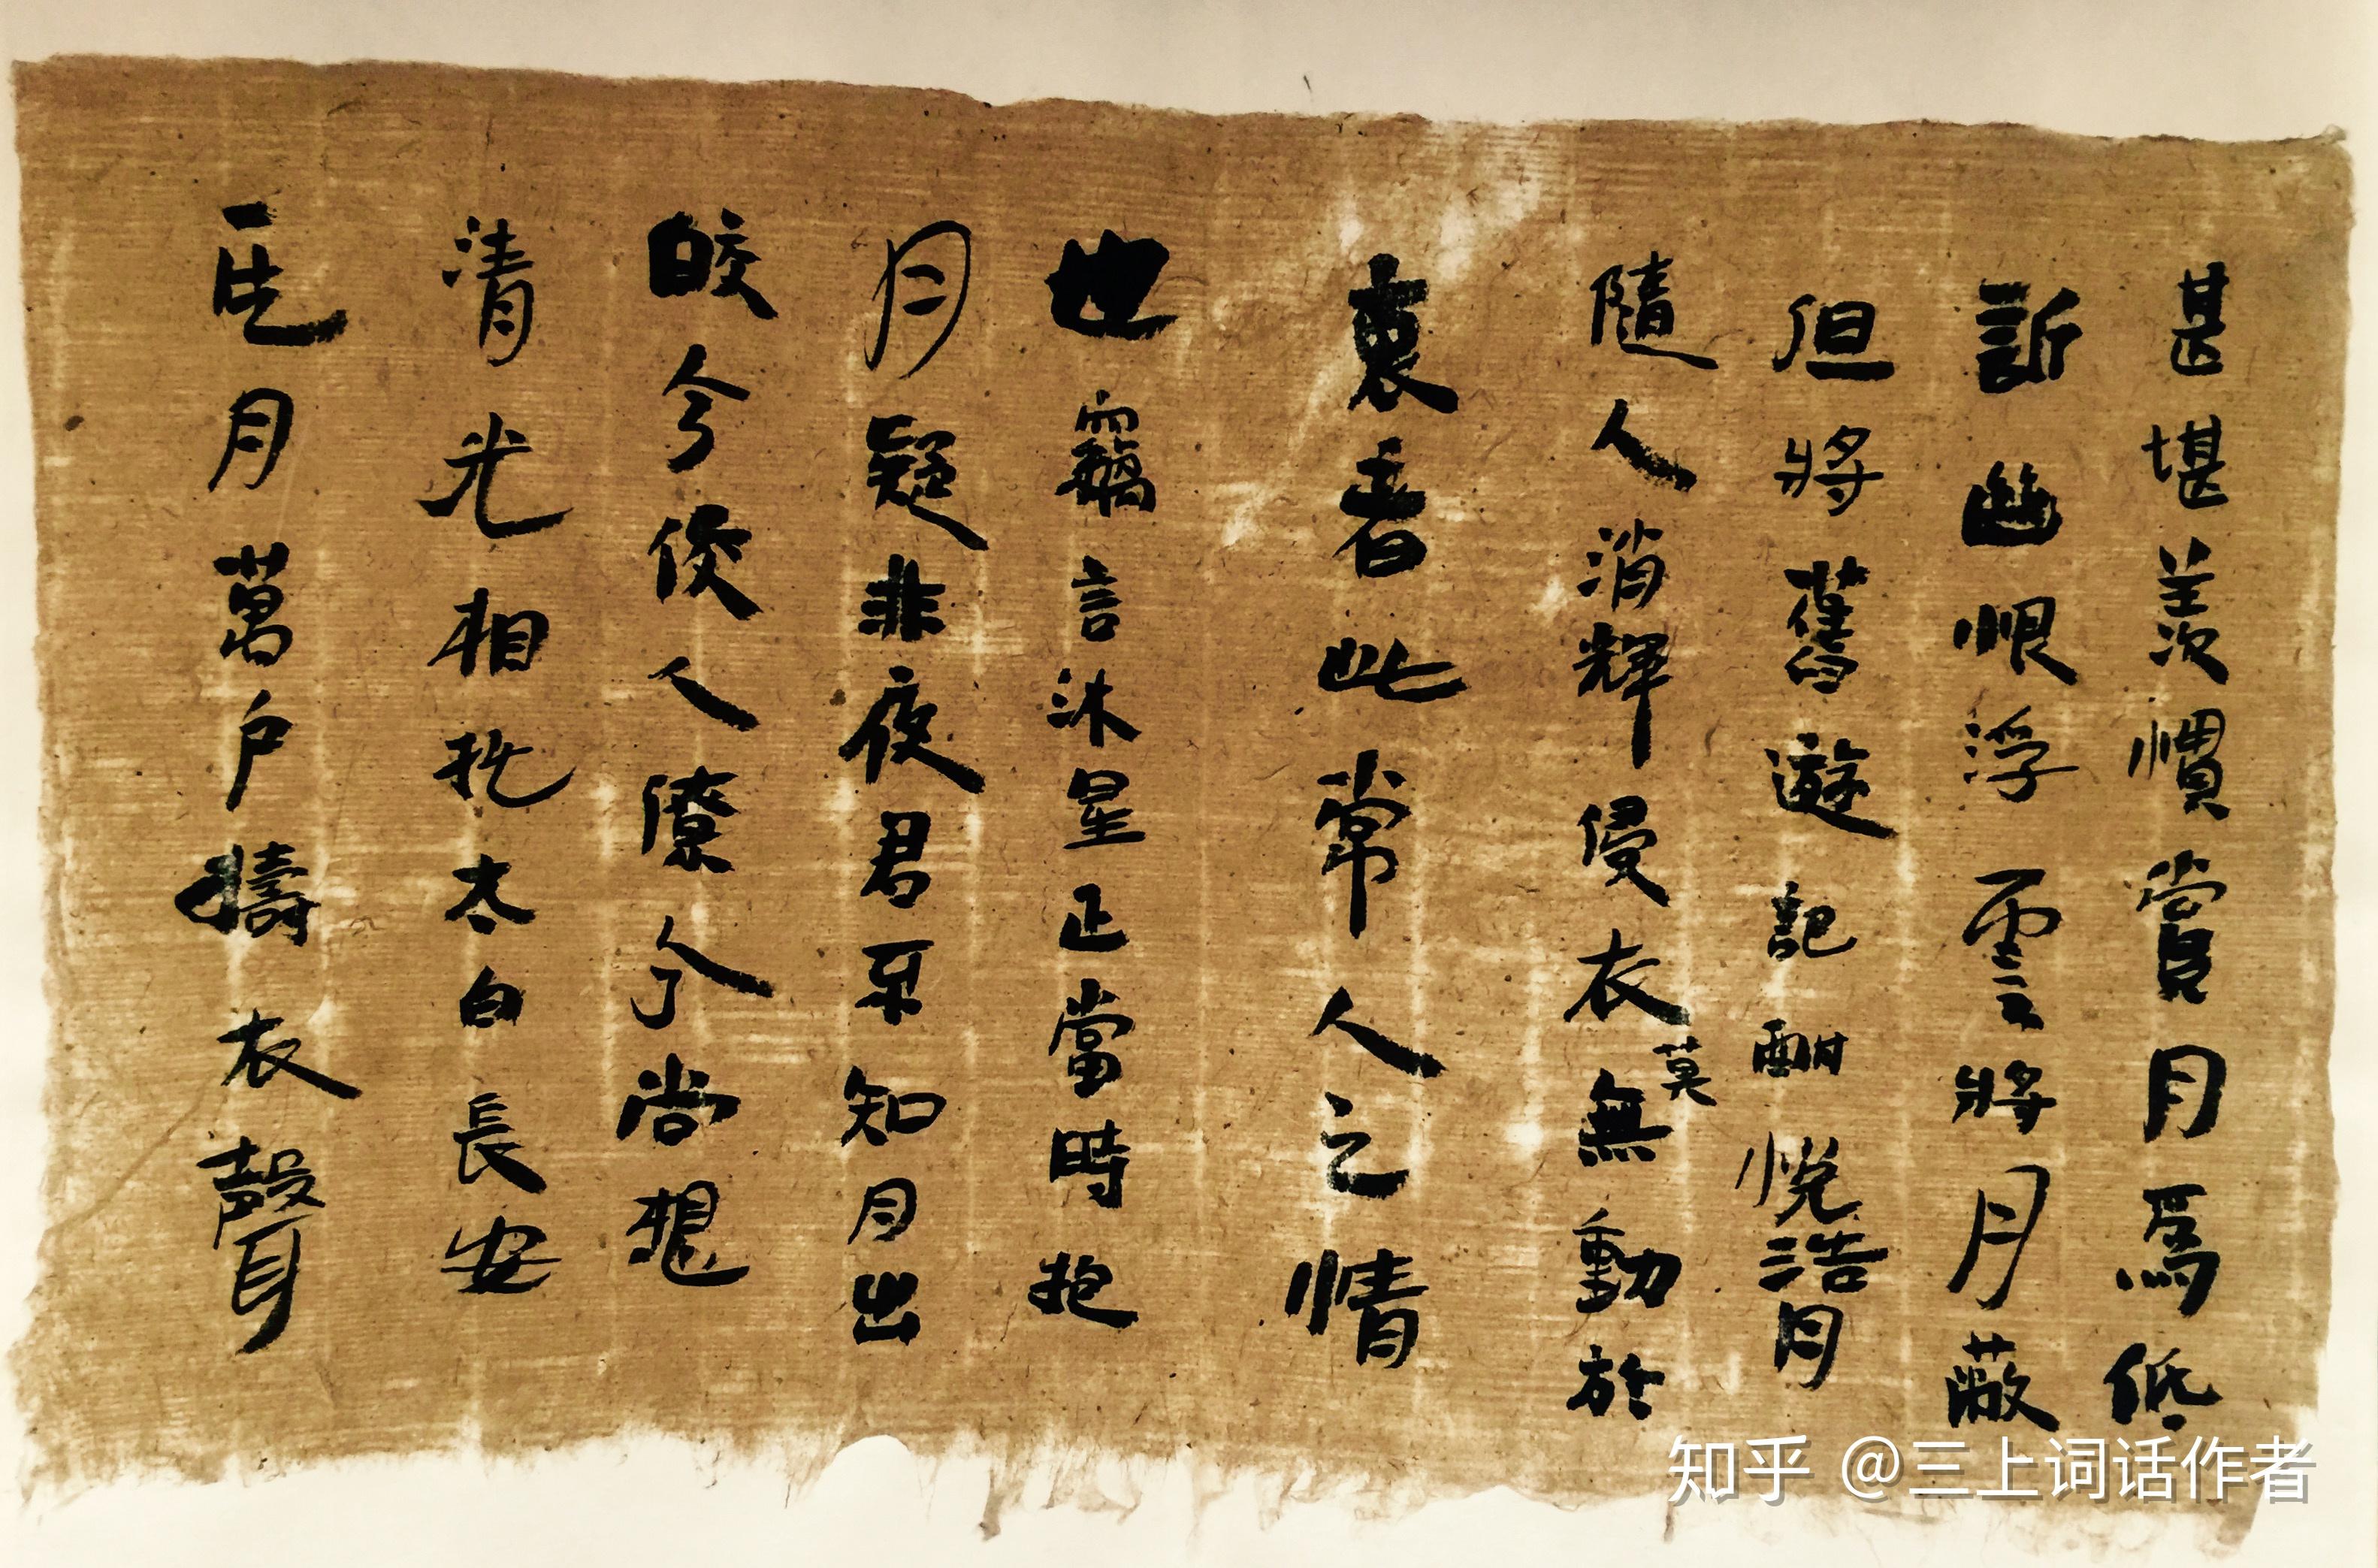 甚堪羨慣賞月爲低
訴幽恨浮雲將月蔽
但將舊遊記酣悅浩月
隨人消輝侵衣莫無動於
衷者此常人之情
也竊言沐星正當時抱
月疑非夜君不知月出
皎兮佼人僚兮尚想
清光相托太白長安
一片月萬戶擣衣聲
知乎 @三上词话作者